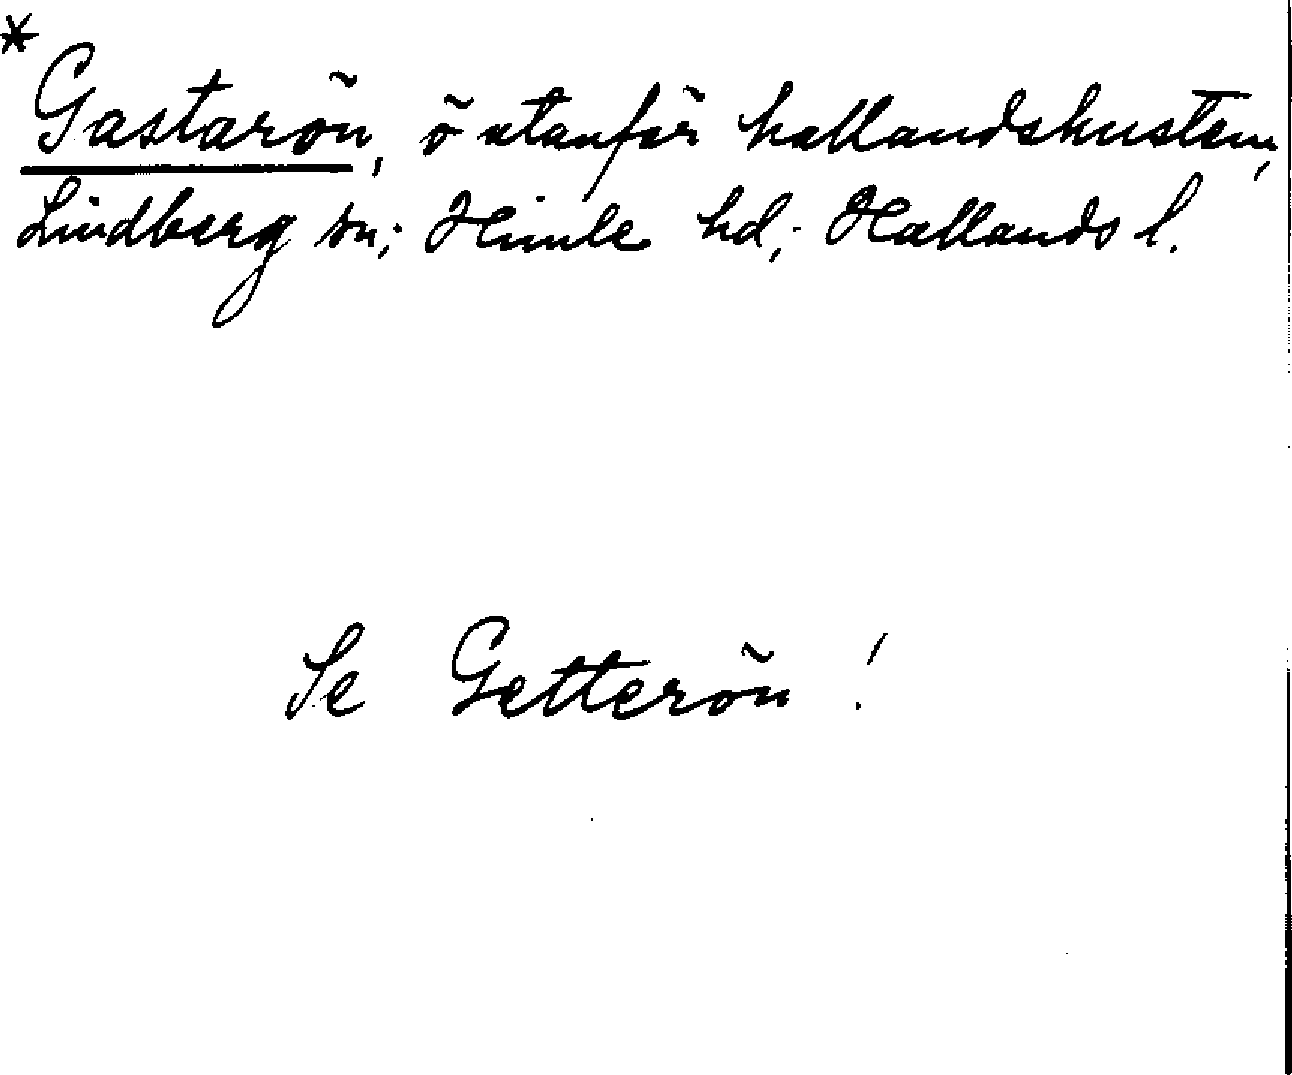 *
Gastarön, ö utanför hallandskusten,
Lindberg sn; Himle hd; Hallands l.
Se Getterön!